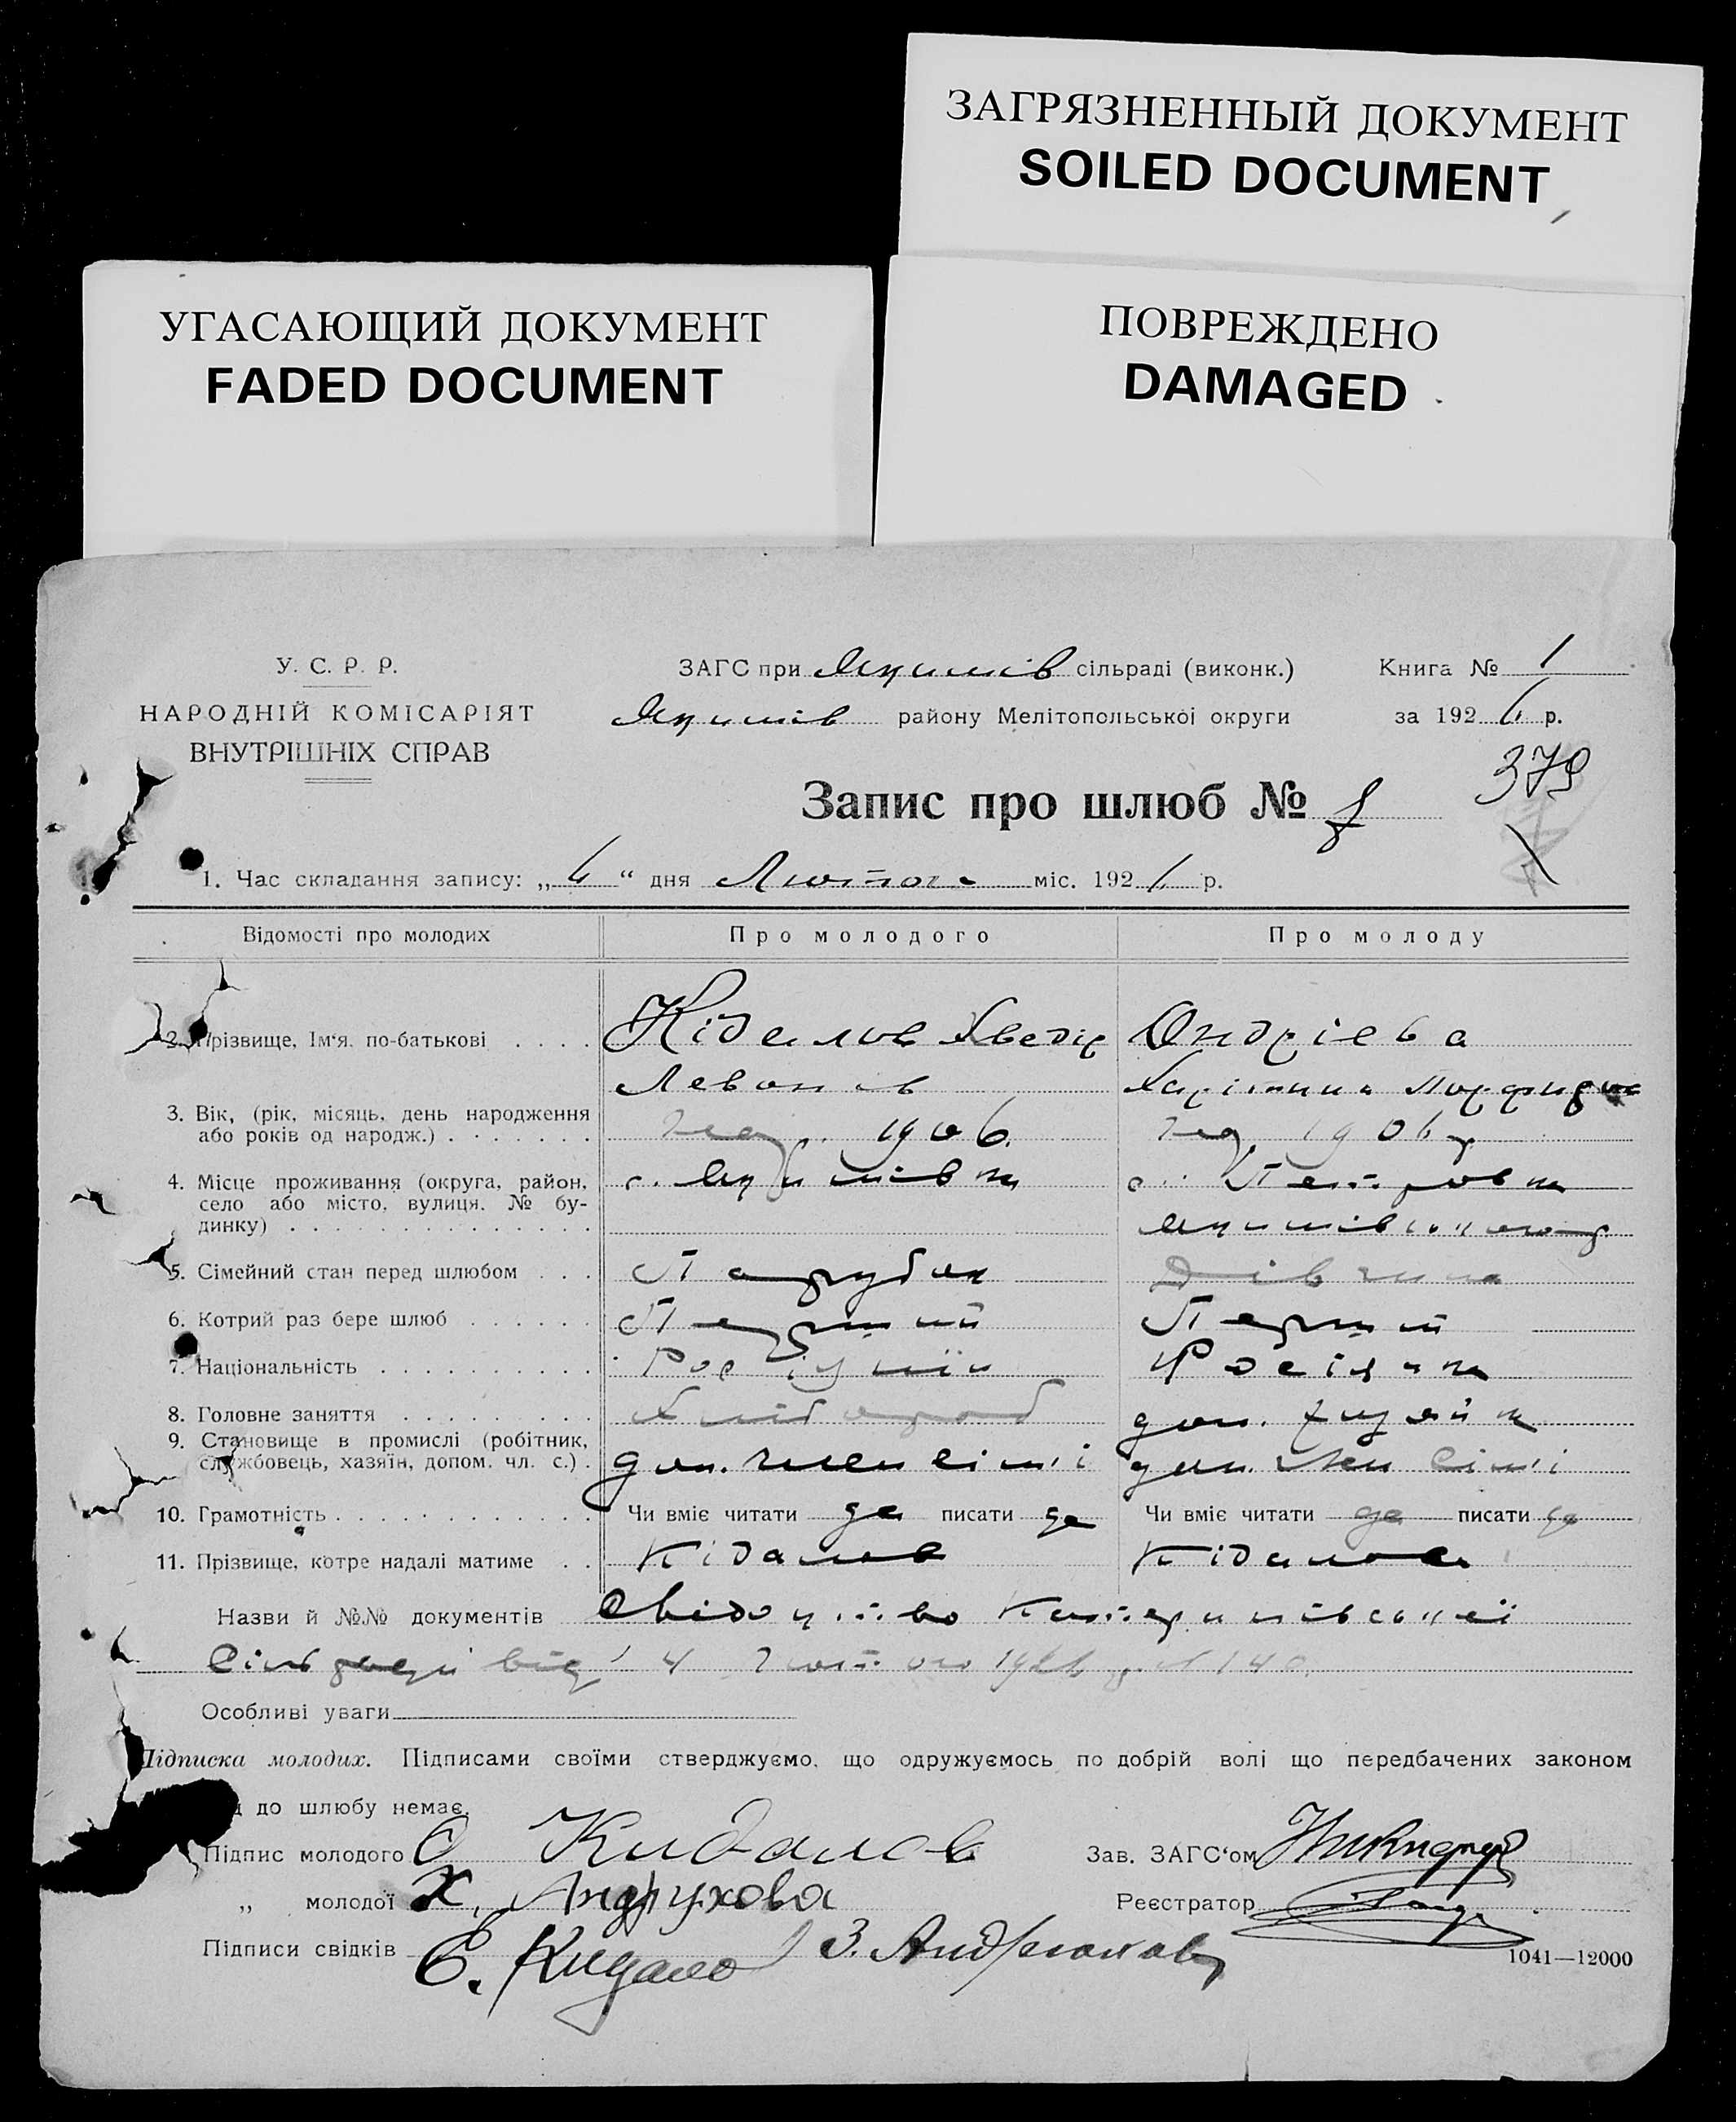 ЗАГРЯЗНЕННЫЙ ДОКУМЕНТ
SOILED DOCUMENT
УГАСАЮЩИЙ ДОКУМЕНТ
FADED DOCUMENT
ПОВРЕЖДЕНО
DAMAGED
У. С. Р. Р.
НАРОДНІЙ КОМІСАРІЯТ
ВНУТРІШНІХ СПРАВ
ЗАГС при Якимів сільраді (виконк.)
Якимів району Мелітопольської округи
Книга № 1
за 1926 р.
379
Запис про шлюб №
1. Час складання запису: „6“ дня Лютого міс. 192 р.
Відомості про молодих Про молодого Про молоду
2. Прізвище, Ім'я, по-батькові . . . . Кідалов Хведір Ондрієва
Харітина
3. Вік, (рік, місяць, день народження
або років од народж.) . . . . . . . 1906. 1906
4. Місце проживання (округа, район,
село або місто, вулиця, № бу-
динку) . . . . . . . . . . . . . .
с. Якимівка с. Петровка
5. Сімейний стан перед шлюбом . . . Парубок Дівчина
6. Котрий раз бере шлюб . . . . . . Перший Перший
7. Національність . . . . . . . . . . Росіянка
8. Головне заняття . . . . . . . . . Хлібороб дом. хазяйка
9. Становище в промислі (робітник,
службовець, хазяїн, допом. чл. с.) . доп. член сім'ї доп. член сім'ї
10. Грамотність . . . . . . . . . . . . Чи вміє читати да писати да Чи вміє читати да писати да
11. Прізвище, котре надалі матиме . . Кідалов Кідалова
Назви й №№ документів Свідоцтво Катеринівської
Сільради від 4 лютого 1926 р. № 140.
Особливі уваги
Підписка молодих. Підписами своїми стверджуємо, що одружуємось по добрій волі що передбачених законом
до шлюбу немає.
Підпис молодого Кидалов Зав. ЗАГС'ом
„ молодої Х. Андрухова Реєстратор
Підписи свідків Е. Кидало З. Андрюхов
1041—12000